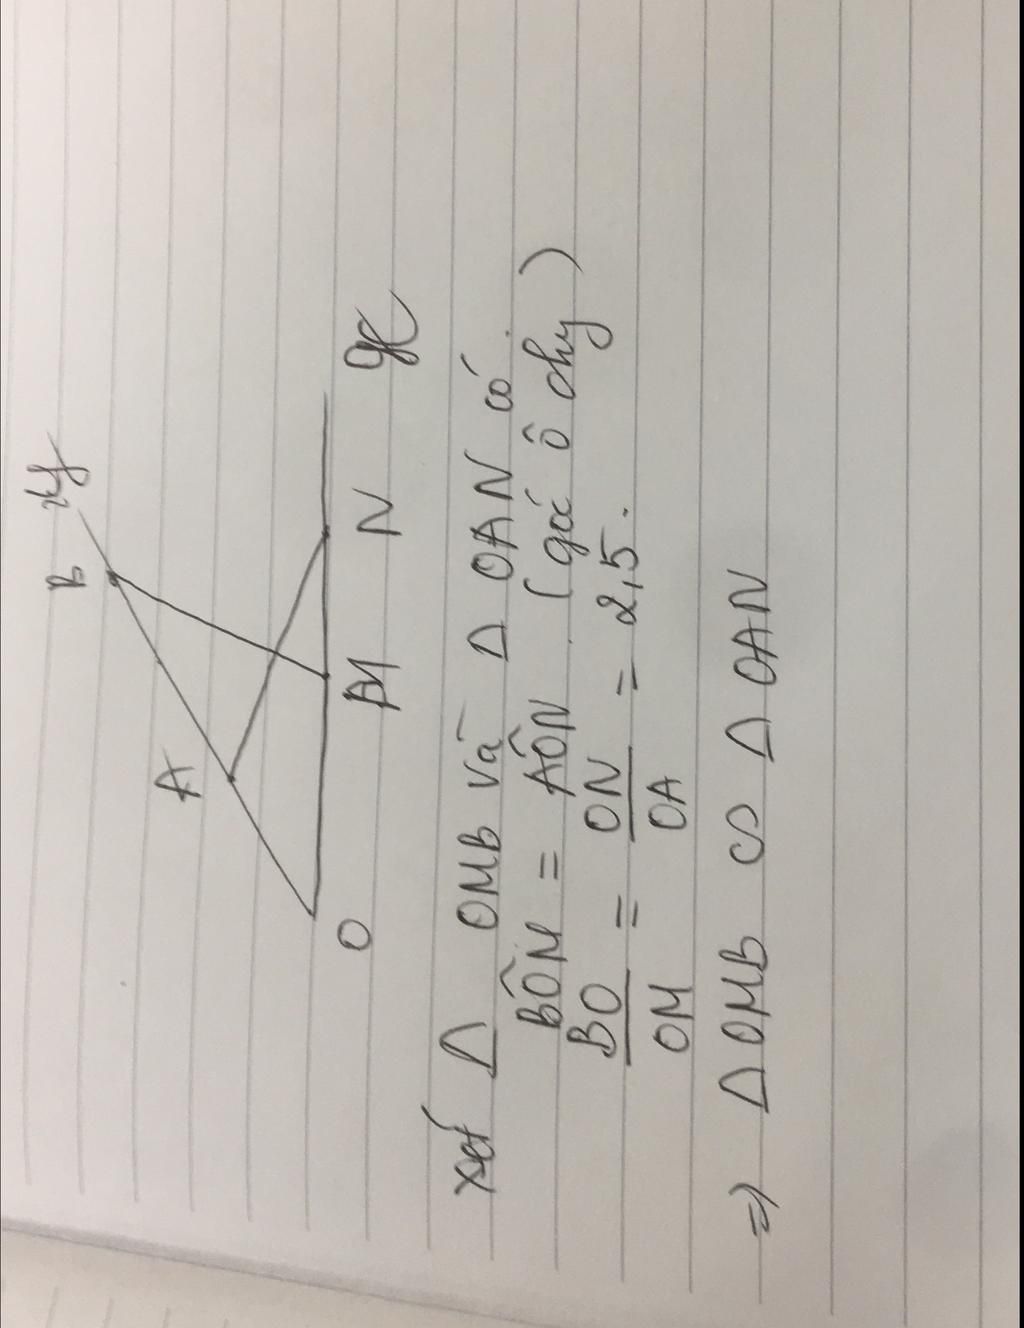 y
B
A
O M N x
xét Δ OMB và Δ OAN có
BÔM = AÔN (góc ô chug)
BO/OM = ON/OA = 2,5.
=> Δ OMB ∽ Δ OAN